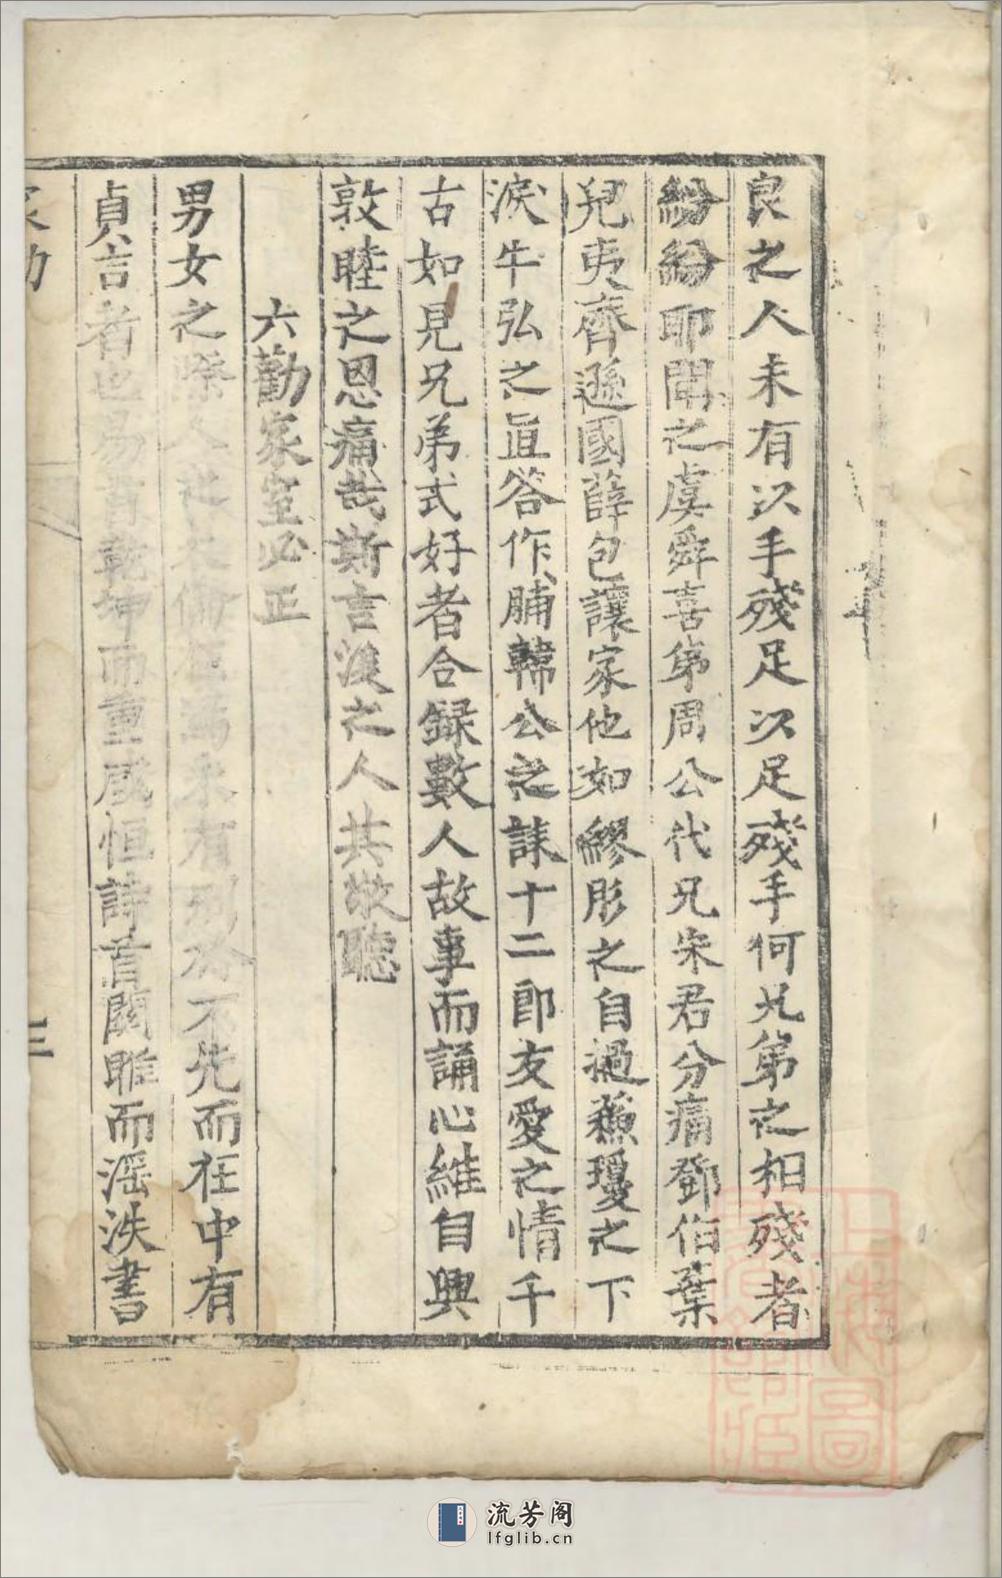 良之人未有以手殘足以足殘手何兄弟之相殘者
紛紛耶聞之虞舜喜第周公代兄宋君分痛鄧伯葉
兒夷齊遜國薛包讓家他如繆彤之自撾蘇瓊之下
淚牛弘之直答作脯韓公之誄十二郎友愛之情千
古如見兄弟式好者合録數人故事而誦心維自興
敦睦之恩痛哉斯言漢之人共敬聽
六勸家室必正
男女之際人之大倫未有刑於不先而在中有
貞言者也易首乾坤而重咸恒詩首關雎而滛泆書
家勸
三
流芳阁
lfglib.cn